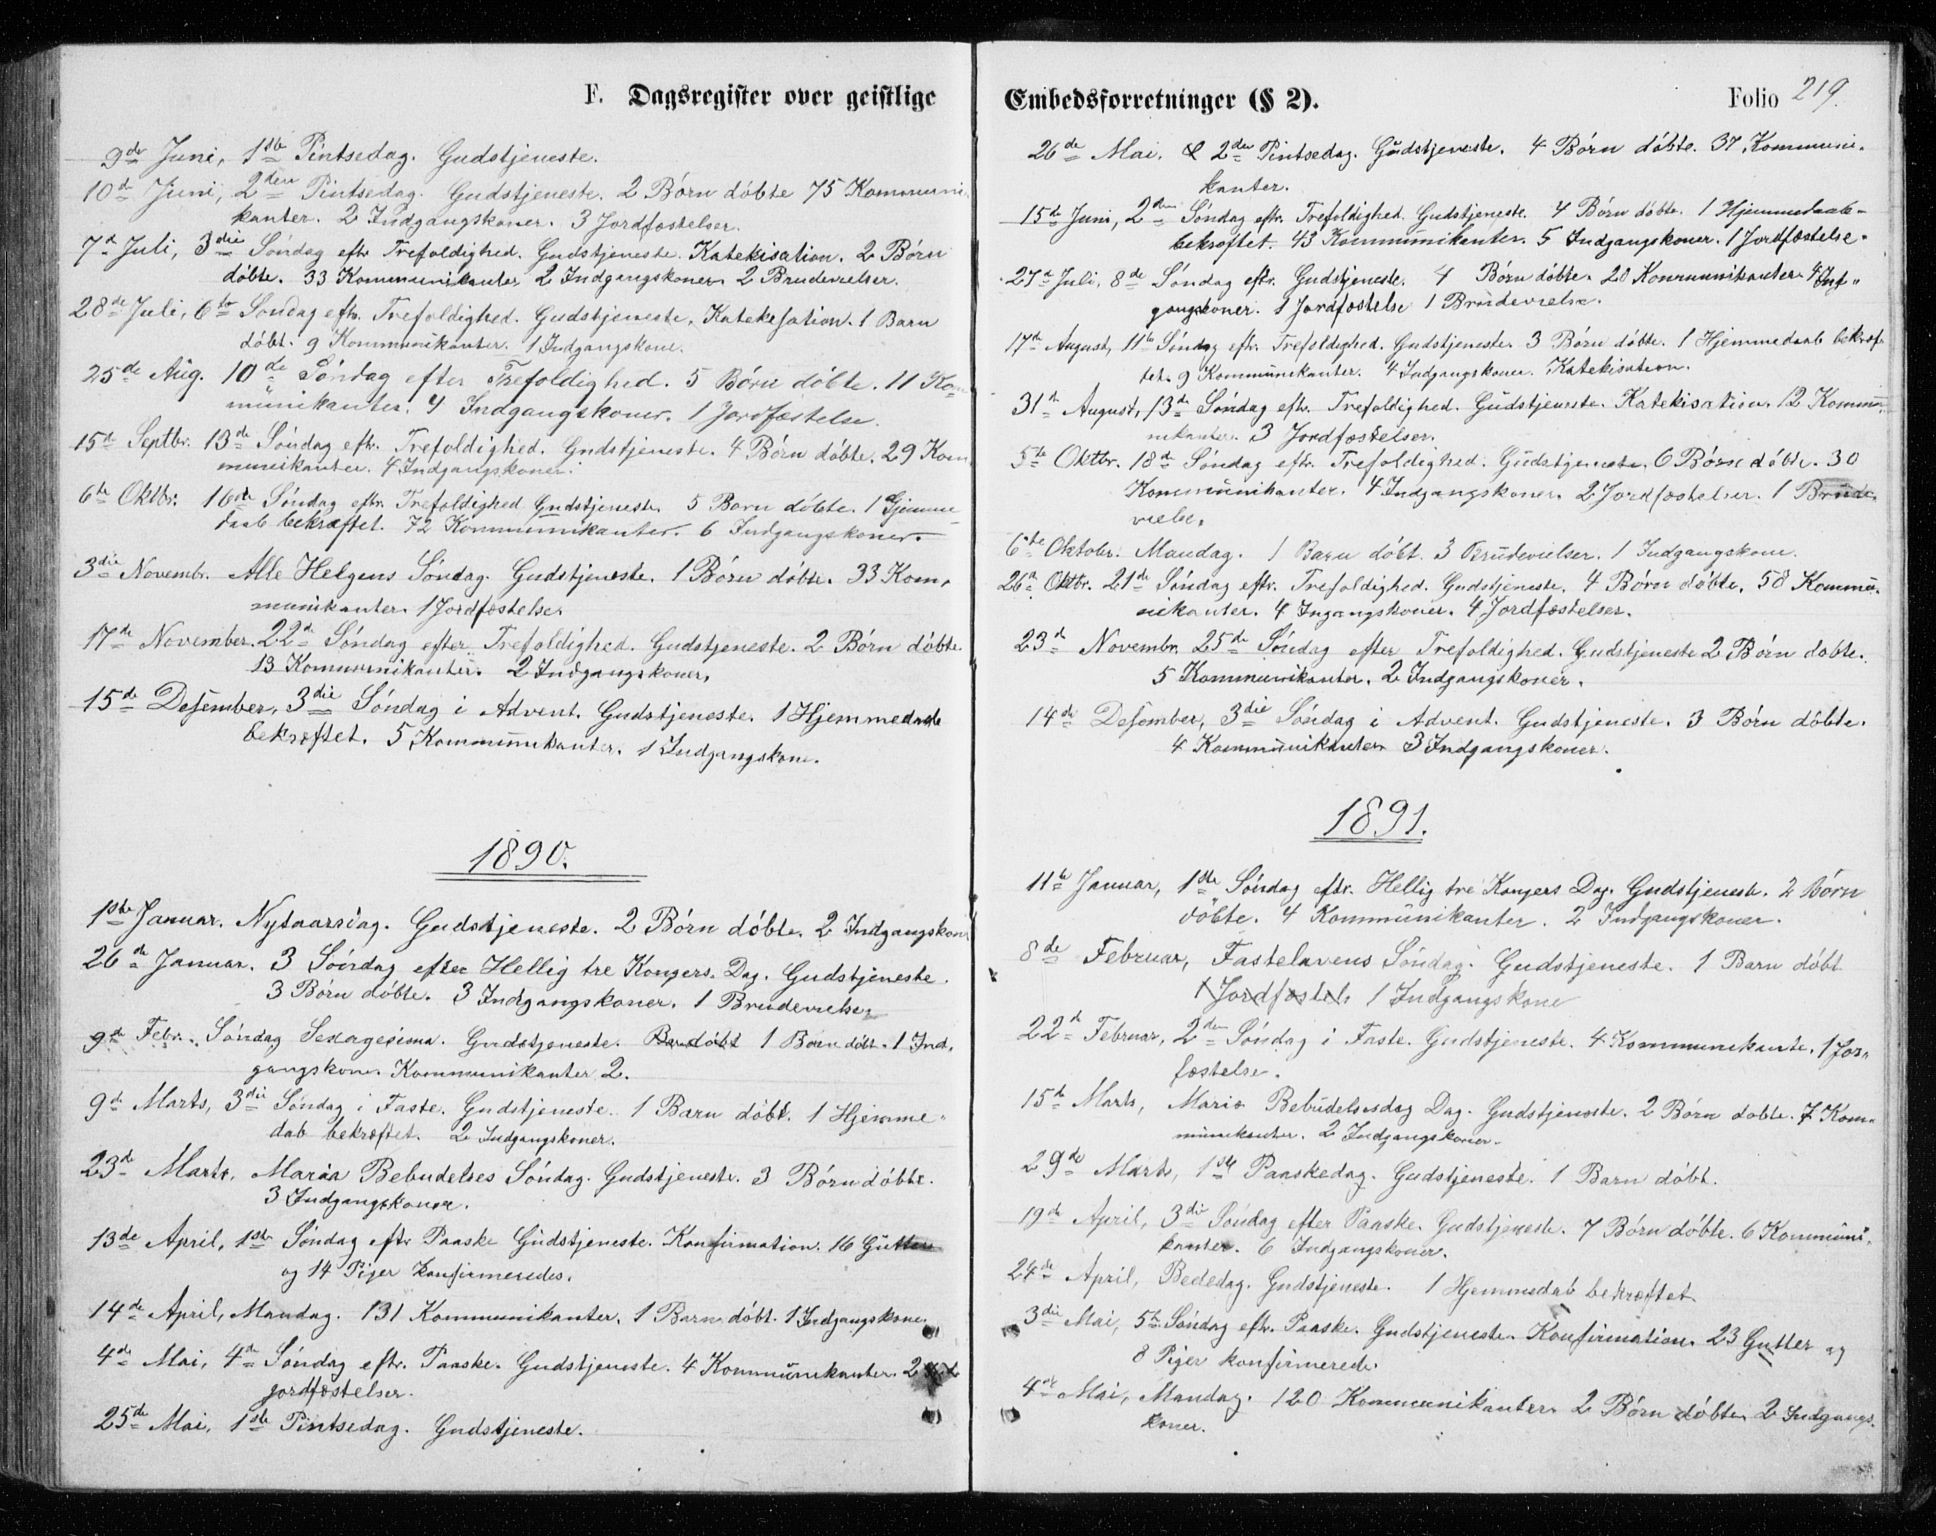 F. Dagsregister over geistlige
9de Juni, 1ste Pintsedag. Gudstjeneste.
10de Juni, 2den Pintsedag. Gudstjeneste. 2 Börn döbte 75 Kommuni
kanter. 2 Indgangskoner. 3 Jordfæstelser.
7d Juli, 3die Söndag eftr Trefoldighed. Gudstjeneste. Katekisation. 2 Börn
döbte. 33 Kommunikanter 2 Indgangskoner 2 Brudevielser.
28de Juli, 6te Söndag eftr. Trefoldighed. Gudstjeneste, Katekesation. 1 Barn
döbt. 9 Kommunikanter. 1 Indgangskone.
25de Aug. 10de Söndag efter Trefoldighed. 5 Börn döbte. 11 Kom
munikanter. 4 Indgangskoner. 1 Jordfæstelse.
15de Septbr. 13de Söndag eftr. Trefoldighed. Gudstjeneste. 4 Börn döbte. 29 Kom
munikanter. 4 Indgangskoner.
6te Oktbr. 16de Söndag eftr. Trefoldighed Gudstjeneste 5 Born döbte. 1 Hjemme-
daab bekræftet. 72 Kommunikanter. 6 Indgangskoner.
3die Novembr. Alle Helgens Söndag. Gudstjeneste. 1 Börn döbte. 33 Kom,
munikanter. 1 Jordfæstelse
17de November. 22d Söndag efter Trefoldighed. Gudstjeneste. 2 Börn döbte.
13 Kommunikanter. 2 Indgangskoner,
15de Desember, 3die Söndag i Advent. Gudstjeneste. 1 Hjemmedaab
bekræftet. 5 Kommunikanter. 1 Indgangskone.
1890.
1ste Januar. Nytaarsdag. Gudstjeneste. 2 Börn döbte. 2 Indgangskon
26de Januar. 3 Söndag efter Hellig tre Kongers Dag. Gudstjeneste.
3 Börn döbte. 3 Indgangskoner. 1 Brudevielse
9de Febr. Söndag Sexagesima. Gudstjeneste. Barn döbt 1 Barn döbt. 1 Ind,
gangskone. Kommunikanter 2.
9de Marts, 3die Söndag i Faste. Gudstjeneste. 1 Barn döbt. 1 Hjemme-
dab bekræftet. 2 Indgangskoner.
23de Marts, Maria Bebudelses Söndag. Gudstjeneste. 3 Börn döbte.
3 Indgangskoner.
13de April, 1ste Söndag eftr Paaske Gudstjeneste. Konfirmation. 16 Gutter
og 14 Piger konfirmeredes.
14de April, Mandag. 131 Kommunikanter, 1 Barn döbt. 1 Indgangskone
4de Mai, 4de Söndag eftr. Paaske. Gudstjeneste. 4 Kommunikanter. 2
jordfæstelser.
25de Mai, 1ste Pintsedag. Gudstjeneste.
Embedsforretninger (§ 2). Folio 219.
26de Mai. 2den Pintsedag. Gudstjeneste. 4 Börn döbte. 37 Kommuni-
kanter.
15de Juni, 2den Söndag eftr. Trefoldighed. Gudstjeneste. 4 Börn döbte. 1 Hjemmedaab-
bekræftet. 43 Kommunikanter. 5 Indgangskoner. 1 Jordfæstelse.
27d Juli, 8de Söndag eftr. Gudstjeneste. 4 Börn döbte. 20 Kommunikanter 4 Ind-
gangskoner. 1 Jordfæstelse 1 Brudevielse.
17de August, 11te Söndag eftr. Trefoldighed. Gudstjeneste 3 Börn döbte. 1 Hjemmedaab bekræf-
tet. 9 Kommunikanter. 4 Indgangskoner. Katekisation.
31te August, 13de Söndag eftr. Trefoldighed. Gudstjeneste. Katekisation. 12 Kommu-
nikanter. 3 Jordfæstelser.
5te Oktbr. 18de Söndag eftr. Trefoldighed. Gudstjeneste. 6 Börn döbte. 30
Kommunikanter. 4 Indgangskoner. 2 Jordfæstelser. 1 Brude-
vielse.
6te Oktober. Mandag. 1 Barn döbt. 3 Brudevielser. 1 Indgangskone.
26de Oktbr. 21de Söndag eftr. Trefoldighed. Gudstjeneste. 4 Börn döbte, 58 Kommu-
nikanter. 4 Ingangskoner. 4 Jordfæstelser.
23de Novembr. 25de Söndag efter Trefoldighed. Gudstjeneste 2 Börn döbte.
5 Kommunikanter. 2 Indgangskoner.
14de Desember, 3die Söndag i Advent. Gudstjeneste. 3 Börn döbte.
4 Kommunikanter 3 Indgangskoner.
1891.
11te Januar, 1ste Söndag eftr. Hellig tre Kongers Dag. Gudstjeneste. 2 Börn
döbte. 4 Kommunikanter. 2 Indgangskoner.
8de Februar, Fastelavens Söndag. Gudstjeneste. 1 Barn döbt
1 Jordfæstels 1 Indgangskone
22de Februar, 2den Söndag i Faste. Gudstjeneste. 4 Kommunikante. 1 Jor-
fæstelse.
15de Marts, Mariæ Bebudelsesdag Dag. Gudstjeneste. 2 Börn döbte. 7 Kom-
munikanter. 2 Indgangskoner.
29de Marts, 1ste Paaskedag. Gudstjeneste. 1 Barn döbt.
19de April, 3die Söndag efter Paaske. Gudstjeneste. 7 Börn döbte. 6 Kommuni-
kanter. 6 Indgangskoner.
24de April, Bededag. Gudstjeneste. 1 Hjemmedab bekræftet
3die Mai, 5te Söndag eftr. Paaske. Gudstjeneste Konfirmation. 23 Gutter og
8 Piger konfirmerede.
4de Mai, Mandag. 120 Kommunikanter 2 Börn döbte 2 Indgangs-
koner.